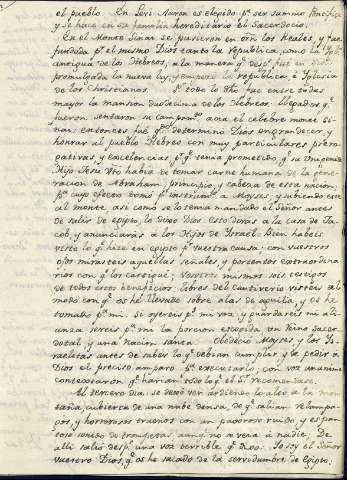 el pueblo. En Levi Aaron es elegido pᵃ ser sumo Pontifice
y se hace en su familia hereditario el Sacerdocio.
En el Monte Sinai se pusieron en orn los Reales, y fue
fundada pʳ el mismo Dios tanto la republica, como la Ygˡᵃ
antigua de los Hebreos, a la manera qᵉ despˢ fué en
promulgada la nueva ley, y empezó la republica, è Yglesia
de los Christianos. Sᵉ todo lo dho fue entre todas
mayor la mansion duodecima de los Hebreos. Llegados qᵉ
fueron, sentaron su campᵗᵒ acia el celebre monte Si-
nai; entonces fué qᵈᵒ determinó Dios engrandecer, y
honrar al pueblo Hebreo con muy particulares prero-
gativas, y excelencias pʳ qᵉ tenia prometido, qᵉ su Unigenito
Hijo Jesu Xto habia de tomar carne humana de la gene-
racion de Abraham, principio, y cabeza de esta nacion,
pᵃ cuyo efecto llamó pʳ a Moyses, y subiendo este
al monte, asi como se lo tenia mandado el Señor antes
de salir de egipto, le dixo Dios: Esto dirás a la casa de Ja-
cob, y anunciarás a los Hijos de Ysrael: Bien habeis
visto lo qᵉ hize en egipto pʳ vuestra causa: con vuestros
ojos mirasteis aquellas señales, y portentos extraordina-
rios con qᵉ los castigué; Vosotros mismos sois testigos
de todos estos beneficios: libres del cautiverio visteis el
modo con qᵉ os hé llevado sobre alas de aguila, y os he
tomado pᵃ mi. Si oyereis pˢ mi voz, y guardareis mi ali-
anza sereis pᵃ mi la porcion escogida, un Reino Sacer-
dotal, y una nacion santa. Obedeció Moyses, y los Ys-
raelitas antes de saber lo qᵉ debian cumplir, y la pedir a
Dios el preciso amparo pᵃ executarlo; con voz unanime
contestaron qᵉ harian todo lo qᵉ el Sʳ recomendase.
Al tercero dia, se dexó ver ardiendo lo alto de la mon-
taña, cubierta de una nube densa, de qᵉ salian relampa-
gos, y horrorosos truenos con un pavoroso ruido, y espan-
toso sonido de trompetas aunqᵉ no se veia a nadie; De
alli salio despˢ una voz terrible qᵉ dixo: Yo soy el Señor
vuestro Dios, qᵉ os he sacado de la servidumbre de Egipto;